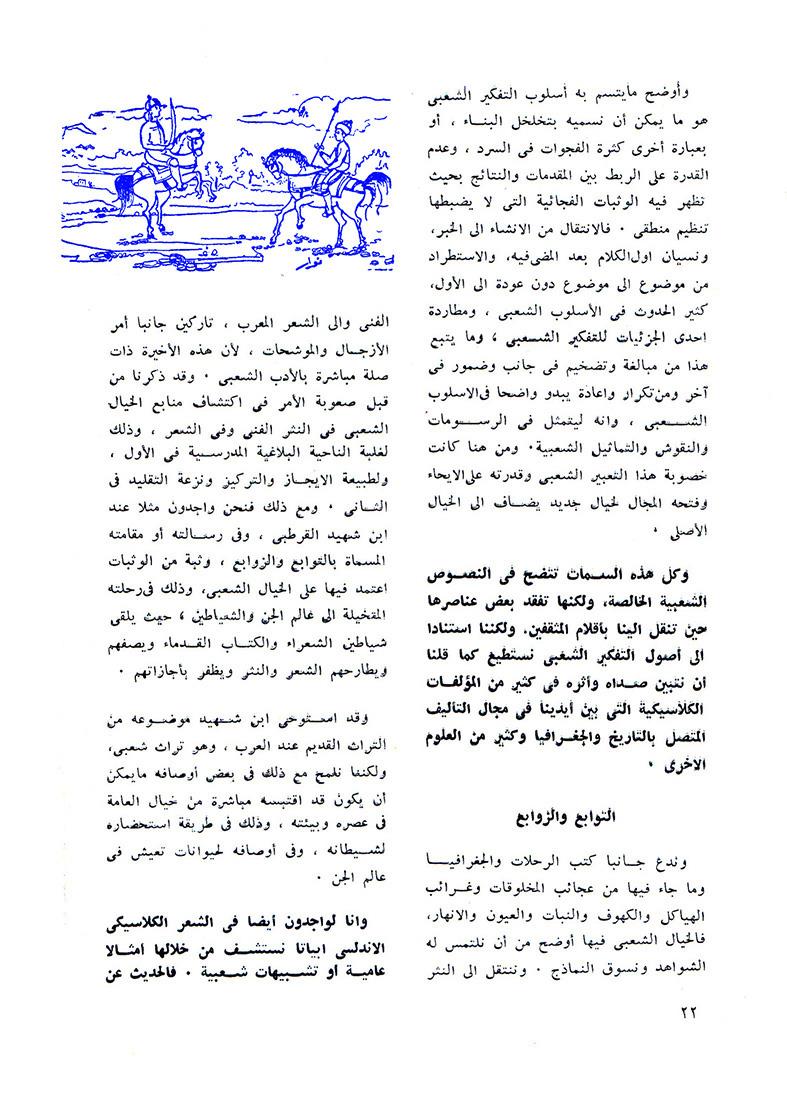 وأوضح مايتسم به أسلوب التفكير الشعبى
هو ما يمكن أن نسميه بتخلخل البناء ، أو
بعبارة أخرى كثرة الفجوات فى السرد ، وعدم
القدرة على الربط بين المقدمات والنتائج بحيث
تظهر فيه الوثبات الفجائية التى لا يضبطها
تنظيم منطقى ٠ فالانتقال من الانشاء الى الخبر،
ونسيان اول الكلام بعد المضى فيه، والاستطراد
من موضوع الى موضوع دون عودة الى الأول،
كثير الحدوث فى الأسلوب الشعبى ، ومطاردة
احدى الجزئيات للتفكير الشعبى ، وما يتبع
هذا من مبالغة وتضخيم فى جانب وضمور فى
آخر ومن تكرار واعادة يبدو واضحا فى الاسلوب
الشعبى ، وانه ليتمثل فى الرسومات
والنقوش والتماثيل الشعبية٠ ومن هنا كانت
خصوبة هذا التعبير الشعبى وقدرته على الايحاء
وفتحه المجال لخيال جديد يضاف الى الخيال
الأصلى ٠
وكل هذه السمات تتضح فى النصوص
الشعبية الخالصة، ولكنها تفقد بعض عناصرها
حين تنقل الينا بأقلام المثقفين. ولكننا استنادا
الى أصول التفكير الشعبى نستطيع كما قلنا
أن نتبين صداه وأثره فى كثير من المؤلفات
الكلاسيكية التى بين أيدينا فى مجال التأليف
المتصل بالتاريخ والجغرافيا وكثير من العلوم
الاخرى ٠
التوابع والزوابع
وندع جانبا كتب الرحلات والجغرافيا
وما جاء فيها من عجائب المخلوقات وغرائب
الهياكل والكهوف والنبات والعيون والانهار،
فالخيال الشعبى فيها أوضح من أن نلتمس له
الشواهد ونسوق النماذج ٠ وننتقل الى النثر
نوار
الفنى والى الشعر المعرب ، تاركين جانبا أمر
الأزجال والموشحات ، لأن هذه الأخيرة ذات
صلة مباشرة بالأدب الشعبى ٠ وقد ذكرنا من
قبل صعوبة الأمر فى اكتشاف منابع الخيال
الشعبى فى النثر الفنى وفى الشعر ، وذلك
لغلبة الناحية البلاغية المدرسية فى الأول ،
ولطبيعة الايجاز والتركيز ونزعة التقليد فى
الثانى ٠ ومع ذلك فنحن واجدون مثلا عند
ابن شهيد القرطبى ، وفى رسالته أو مقامته
المسماة بالتوابع والزوابع ، وثبة من الوثبات
اعتمد فيها على الخيال الشعبى، وذلك فى رحلته
المتخيلة الى عالم الجن والشياطين ، حيث يلقى
شياطين الشعراء والكتاب القدماء ويصفهم
ويطارحهم الشعر والنثر ويظفر بأجازاتهم ٠
وقد استوحى ابن شهيد موضوعه من
التراث القديم عند العرب ، وهو تراث شعبى،
ولكننا نلمح مع ذلك فى بعض أوصافه مايمكن
أن يكون قد اقتبسه مباشرة من خيال العامة
فى عصره وبيئته ، وذلك فى طريقة استحضاره
لشيطانه ، وفى أوصافه لحيوانات تعيش فى
عالم الجن ٠
وانا لواجدون أيضا فى الشعر الكلاسيكى
الاندلسى ابياتا نستشف من خلالها أمثالا
عامية او تشبيهات شعبية ٠ فالحديث عن
٢٢